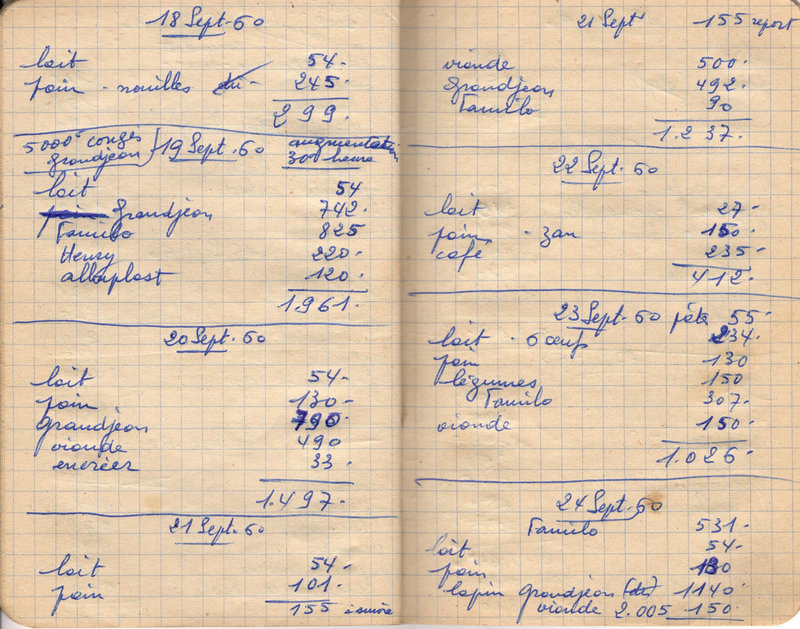 18 Sept. 60
lait 54.-
pain - nouilles 245.-
299.
5000 congés grandjean
19 Sept. 60
augmentation 30 heure
lait 54
Grandjean 742.
Familo 825
Henry 220.-
allaplast 120.
1.961.
20 Sept. 60
lait 54.-
pain 130.-
Grandjean 790.
viande 490
encréer 33.
1.497.
21 Sept. 60
lait 54.-
pain 101.
155 à suivre
21 Sept 155 report
viande 500.
Grandjean 492.
Familo 90
1.237.
22 Sept. 60
lait 27.-
pain - zan 150.-
café 235.-
412.-
23 Sept. 60 pâte 55.-
lait - 6 œufs 234.
pain 130
légumes 150
Familo 307.
viande 150.
1.026.
24 Sept. 60
Familo 531.-
lait 54.-
pain 130
lapin Grandjean (du) 1140
viande 2.005 150.